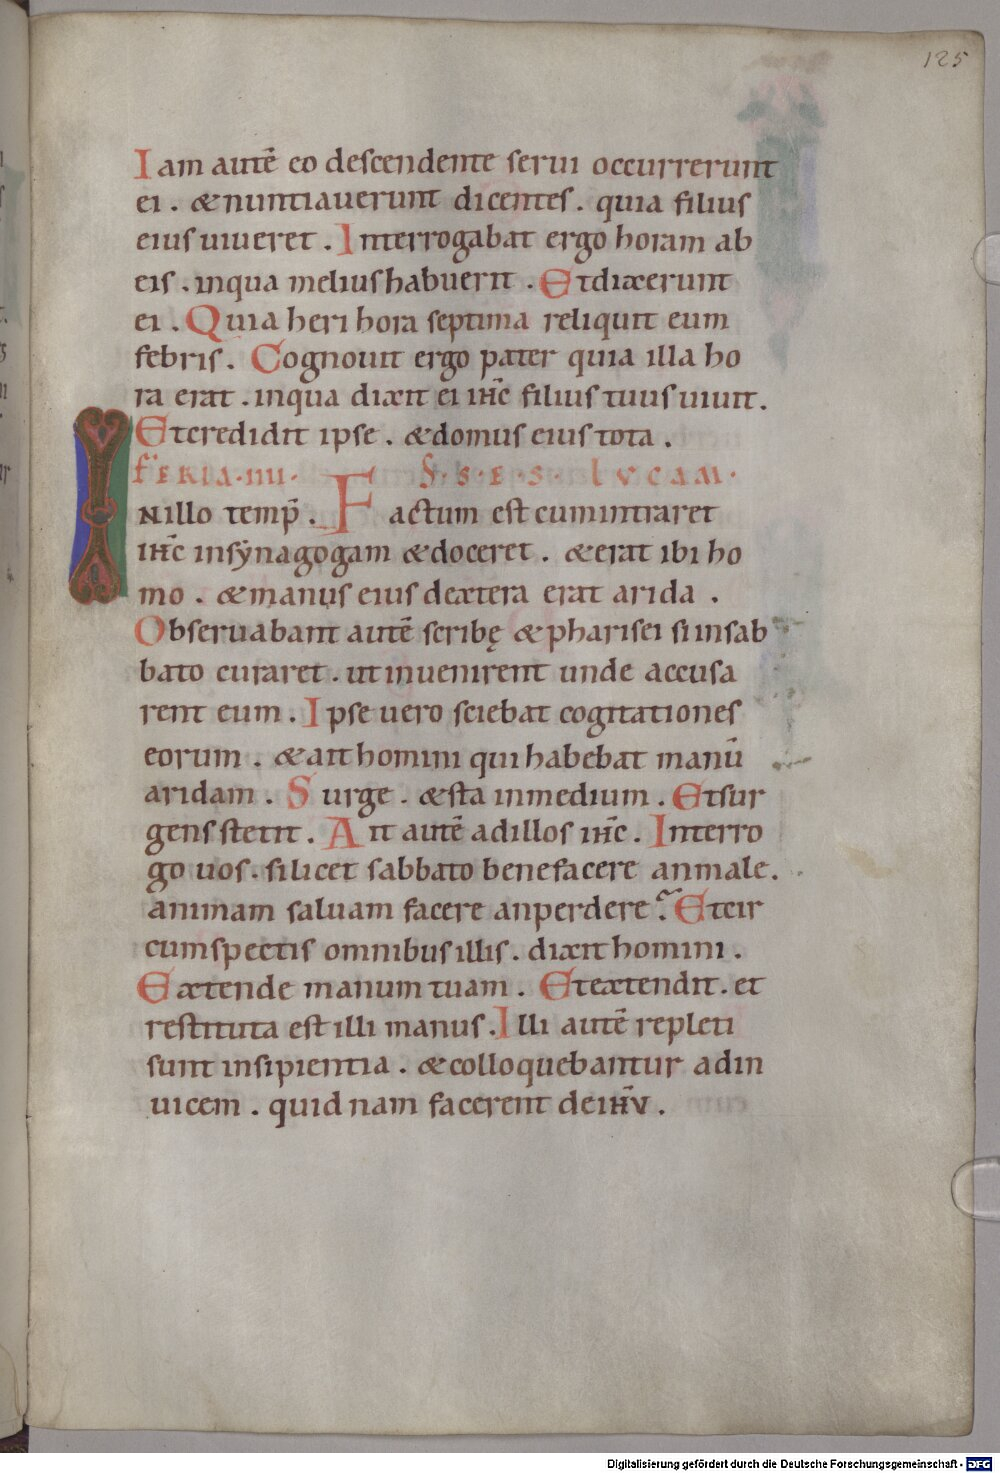 125
Iam autē eo descendente serui occurrerunt
ei . & nuntiauerunt dicentes . quia filius
eius uiueret . Interrogabat ergo horam ab
eis . inqua melius habuerit . Et dixerunt
ei . Quia heri hora septima reliquit eum
febris . Cognouit ergo pater quia illa ho
ra erat . inqua dixit ei ihc̄ filius tuus uiuit .
Et credidit ipse . & domus eius tota .
FERIA · IIII · S · S · E · S · LVCAM ·
INillo temp̄ . Factum est cum intraret
ihc̄ in synagogam & doceret . & erat ibi ho
mo . & manus eius dextera erat arida .
Obseruabant autē scribę & pharisei si insab
bato curaret . ut inuenirent unde accusa
rent eum . Ipse uero sciebat cogitationes
eorum . & ait homini qui habebat manū
aridam . Surge . & sta inmedium . Et sur
gens stetit . Ait autē ad illos ihc̄ . Interro
go uos . si licet sabbato benefacere an male .
animam saluam facere an perdere ? Et cir
cumspectis omnibus illis . dixit homini .
Extende manum tuam . Et extendit . et
restituta est illi manus . Illi autē repleti
sunt insipientia . & colloquebantur adin
uicem . quid nam facerent de ih̄v .
Digitalisierung gefördert durch die Deutsche Forschungsgemeinschaft - DFG